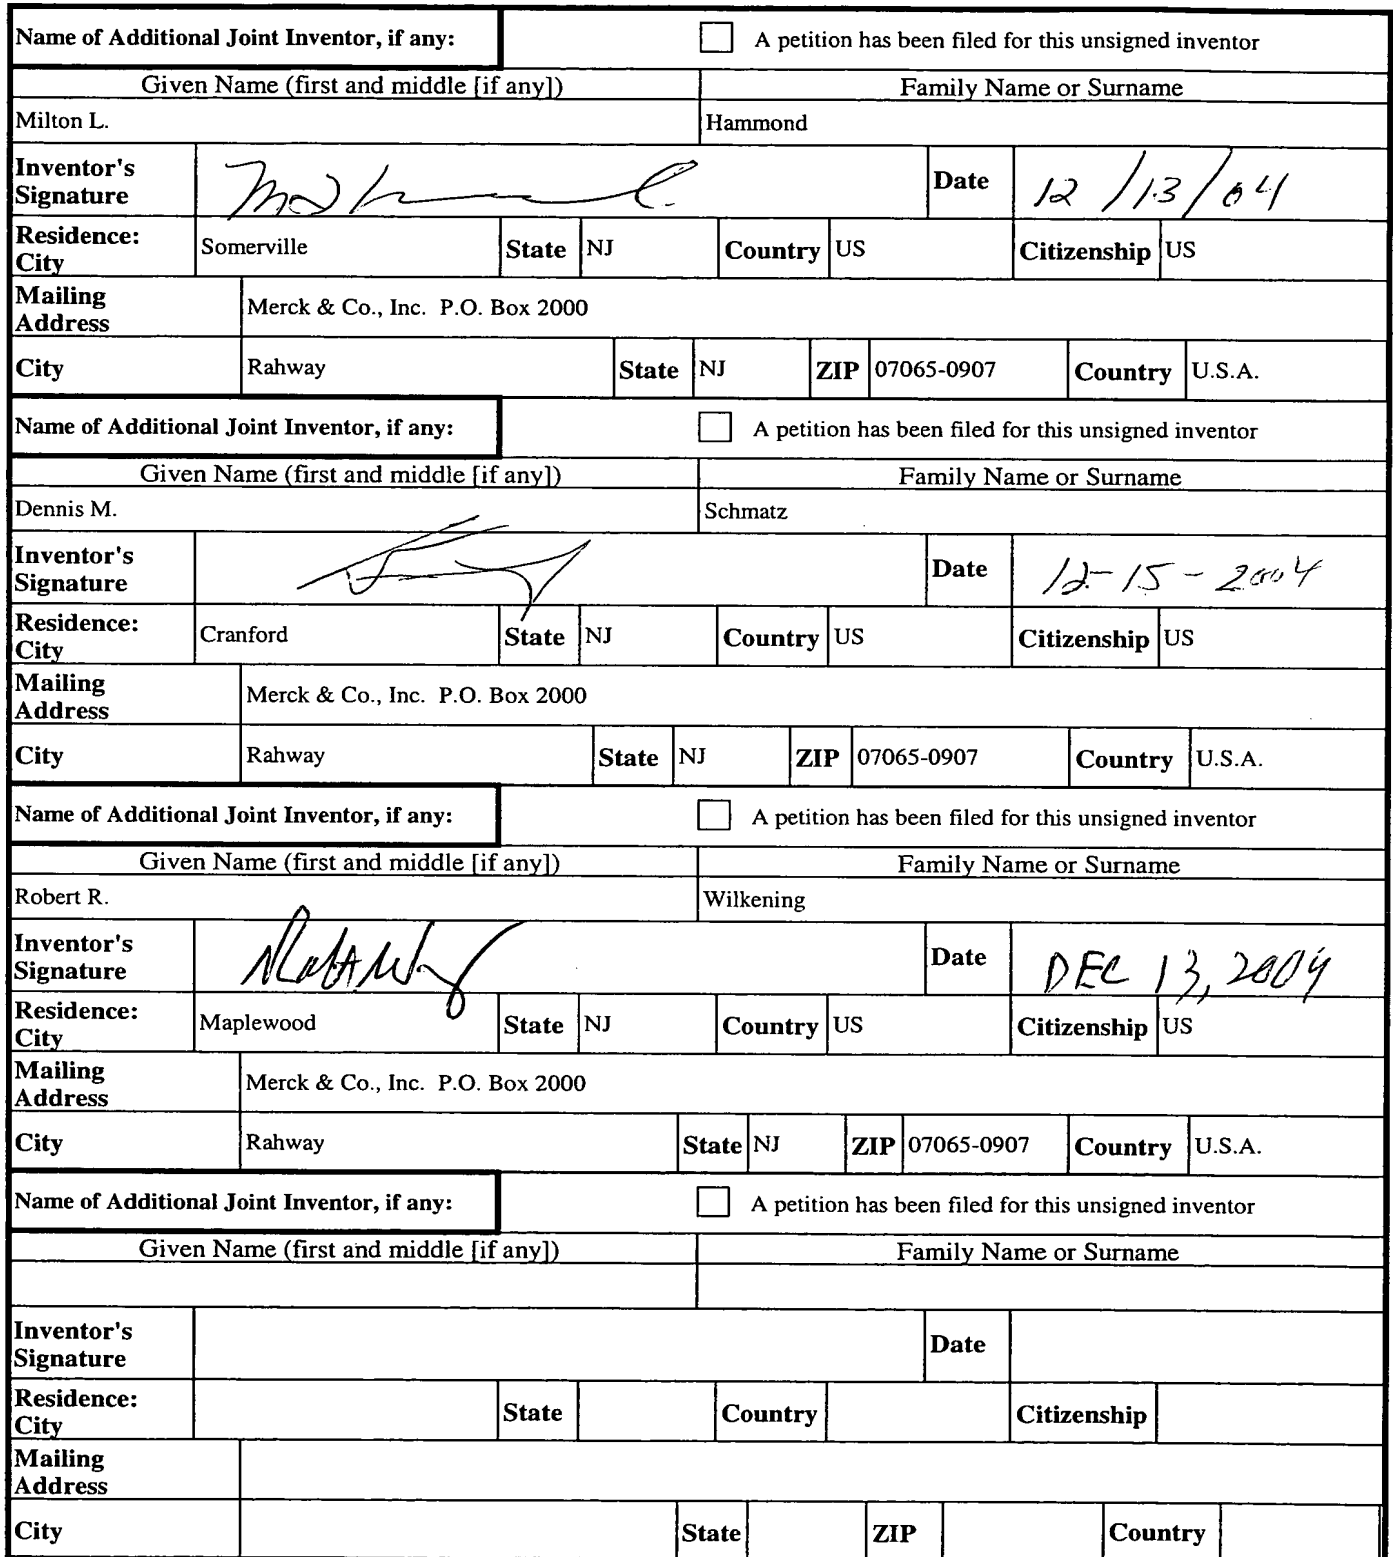 Name of Additional Joint Inventor, if any: A petition has been filed for this unsigned inventor
Given Name (first and middle [if any]) Family Name or Surname
Milton L. Hammond
Inventor's Signature Date 12/13/04
Residence: City Somerville State NJ Country US Citizenship US
Mailing Address Merck & Co., Inc. P.O. Box 2000
City Rahway State NJ ZIP 07065-0907 Country U.S.A.
Name of Additional Joint Inventor, if any: A petition has been filed for this unsigned inventor
Given Name (first and middle [if any]) Family Name or Surname
Dennis M. Schmatz
Inventor's Signature Date 12-15-2004
Residence: City Cranford State NJ Country US Citizenship US
Mailing Address Merck & Co., Inc. P.O. Box 2000
City Rahway State NJ ZIP 07065-0907 Country U.S.A.
Name of Additional Joint Inventor, if any: A petition has been filed for this unsigned inventor
Given Name (first and middle [if any]) Family Name or Surname
Robert R. Wilkening
Inventor's Signature Date DEC 13, 2004
Residence: City Maplewood State NJ Country US Citizenship US
Mailing Address Merck & Co., Inc. P.O. Box 2000
City Rahway State NJ ZIP 07065-0907 Country U.S.A.
Name of Additional Joint Inventor, if any: A petition has been filed for this unsigned inventor
Given Name (first and middle [if any]) Family Name or Surname
Inventor's Signature Date
Residence: City State Country Citizenship
Mailing Address
City State ZIP Country